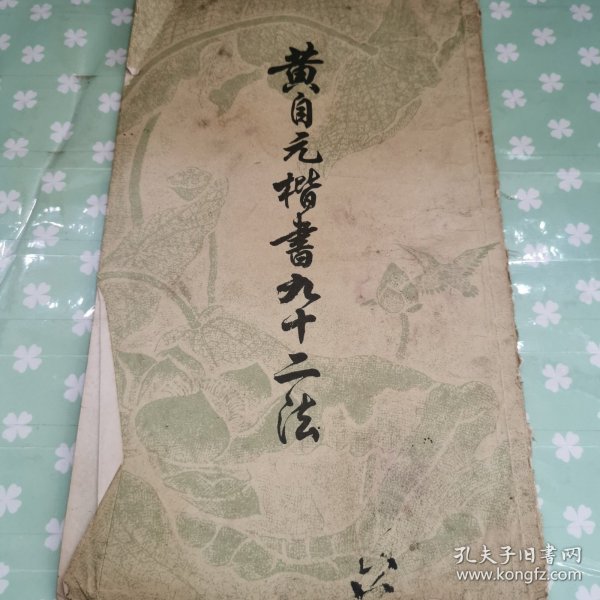 黄自元楷書九十二法
孔夫子旧书网
www.kongfz.com